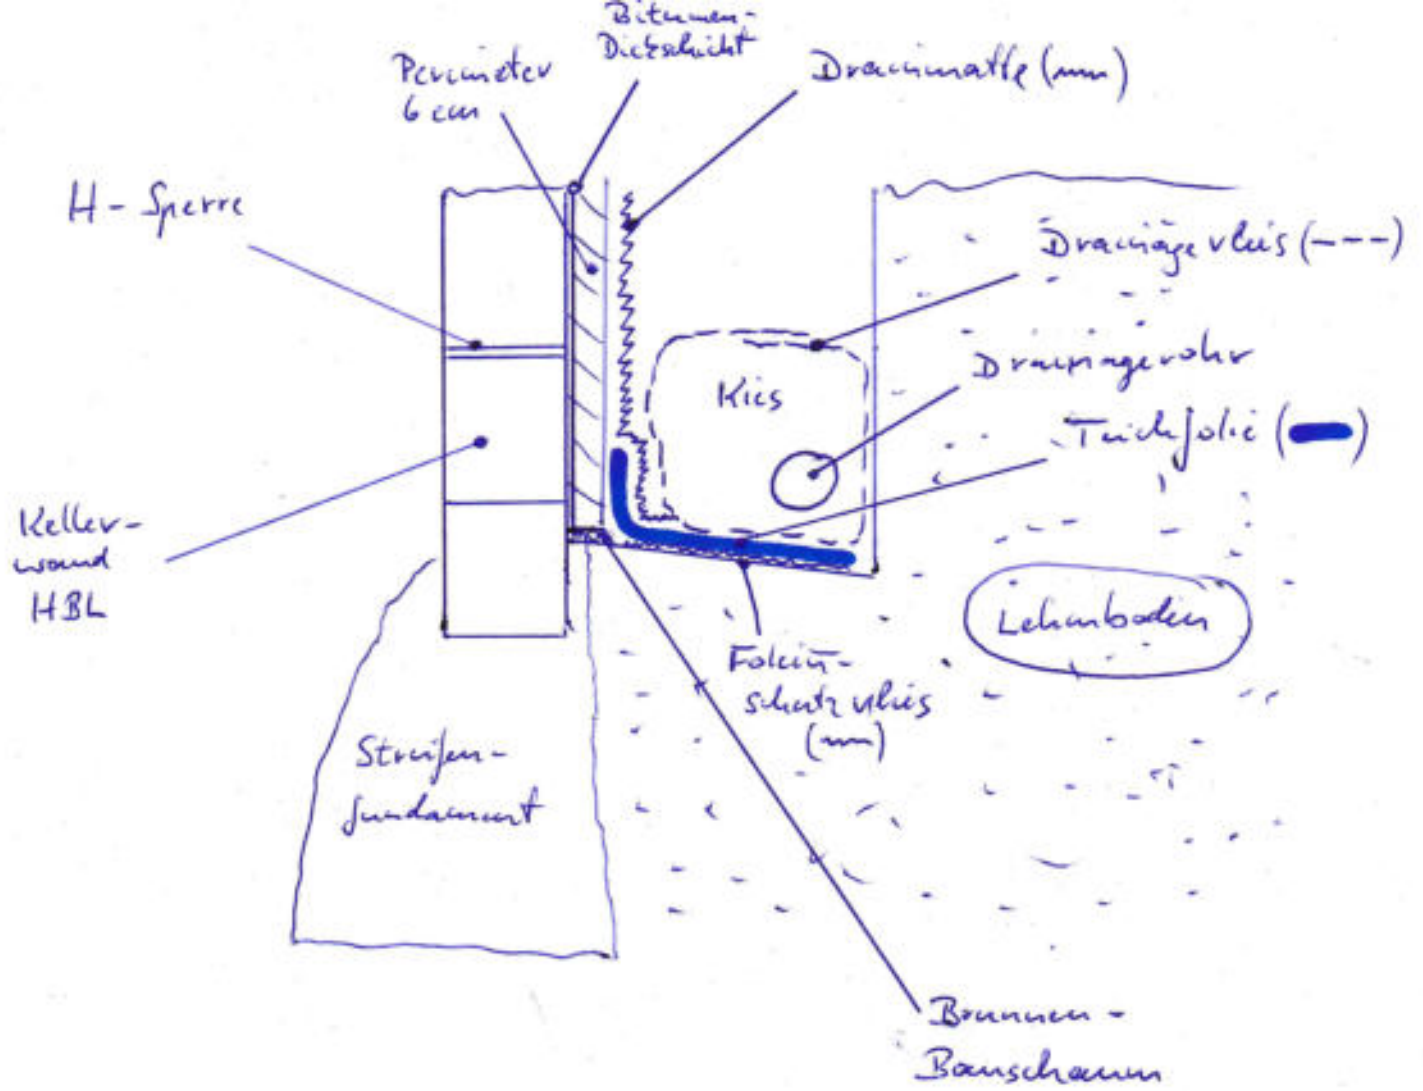 Bitumen-
Dickschicht
Perimeter
6 cm
Drainmatte (~~)
H - Sperre
Drainagevlies (---)
Drainagerohr
Kies
Teichfolie (▬)
Keller-
wand
HBL
Lehmboden
Folien-
schutzvlies
(~~)
Streifen-
fundament
Brunnen-
Bauschaum